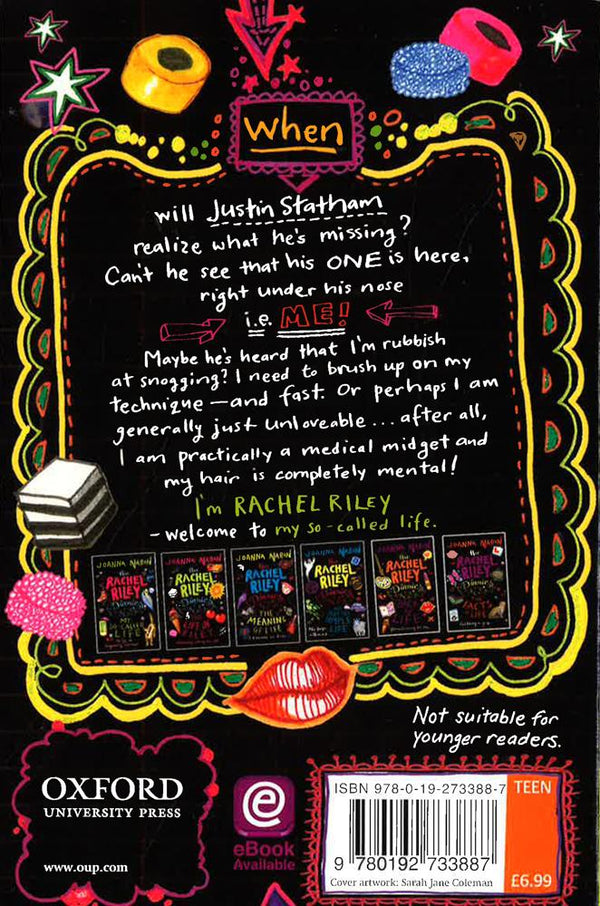 When
will Justin Statham
realize what he's missing?
Can't he see that his ONE is here,
right under his nose
i.e. ME!
Maybe he's heard that I'm rubbish
at snogging? I need to brush up on my
technique—and fast. Or perhaps I am
generally just unloveable... after all,
I am practically a medical midget and
my hair is completely mental!
I'm RACHEL RILEY
- welcome to my so-called life.
JOANNA NADIN
The
RACHEL
RILEY
Diaries
MY
SO-CALLED
LIFE
JOANNA NADIN
The
RACHEL
RILEY
Diaries
LIFE OF RILEY
JOANNA NADIN
The
RACHEL
RILEY
Diaries
THE
MEANING
OF LIFE
JOANNA NADIN
The
RACHEL
RILEY
LIFE
JOANNA NADIN
The
RACHEL
RILEY
Diaries
LIFE
JOANNA NADIN
The
RACHEL
RILEY
Diaries
Not suitable for
younger readers.
OXFORD
UNIVERSITY PRESS
www.oup.com
e
eBook
Available
ISBN 978-0-19-273388-7
TEEN
9 780192 733887
Cover artwork: Sarah Jane Coleman
£6.99